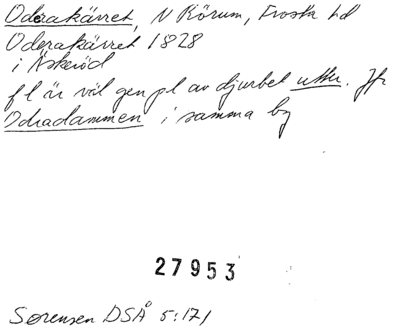 Oderakärret, N Rörum, Frosta hd
Oderakärret 1828
i Äskeröd
f l är väl gen pl av djurbet utter. Jfr
Odradammen i samma by
27953
Sørensen DSÅ 5:171